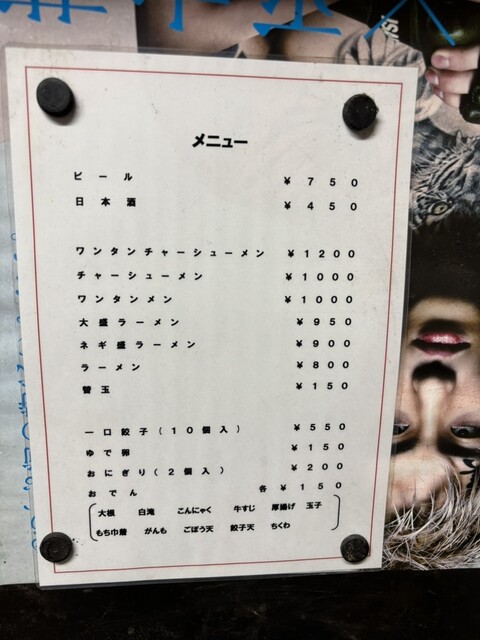 メニュー
ビール ¥750
日本酒 ¥450
ワンタンチャーシューメン ¥1200
チャーシューメン ¥1000
ワンタンメン ¥1000
大盛ラーメン ¥950
ネギ盛ラーメン ¥900
ラーメン ¥800
替玉 ¥150
一口餃子(10個入) ¥550
ゆで卵 ¥150
おにぎり(2個入) ¥200
おでん 各¥150
大根 白滝 こんにゃく 牛すじ 厚揚げ 玉子
もち巾着 がんも ごぼう天 餃子天 ちくわ